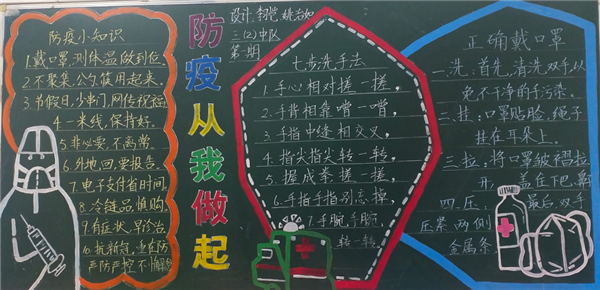 防疫小知识
1.戴口罩,测体温做到位.
2.不聚集,公勺筷用起来.
3.节假日,少串门,网传祝福
4.一米线,保持好.
5.非必要,不离常.
6.外地,回,要报告.
7.电子支付省时间.
8.冷链品,慎购.
9.有症状,早诊治.
10.抗新冠,重自防
严防严控不懈
防疫从我做起
设计:
三(2)中队
第一期
七步洗手法
1.手心相对搓一搓,
2.手背相靠噌一噌,
3.手指中缝相交叉,
4.指尖指尖转一转,
5.握成拳搓一搓,
6.手指手指别忘掉,
7.手腕手腕
转一转
正确戴口罩
一.洗:首先,清洗双手以
免不干净的手污染.
二.挂:口罩贴脸,绳子
挂在耳朵上.
三.拉:将口罩皱褶拉
开 盖住下巴,
四.压: 最后,双手
压紧两侧
金属条